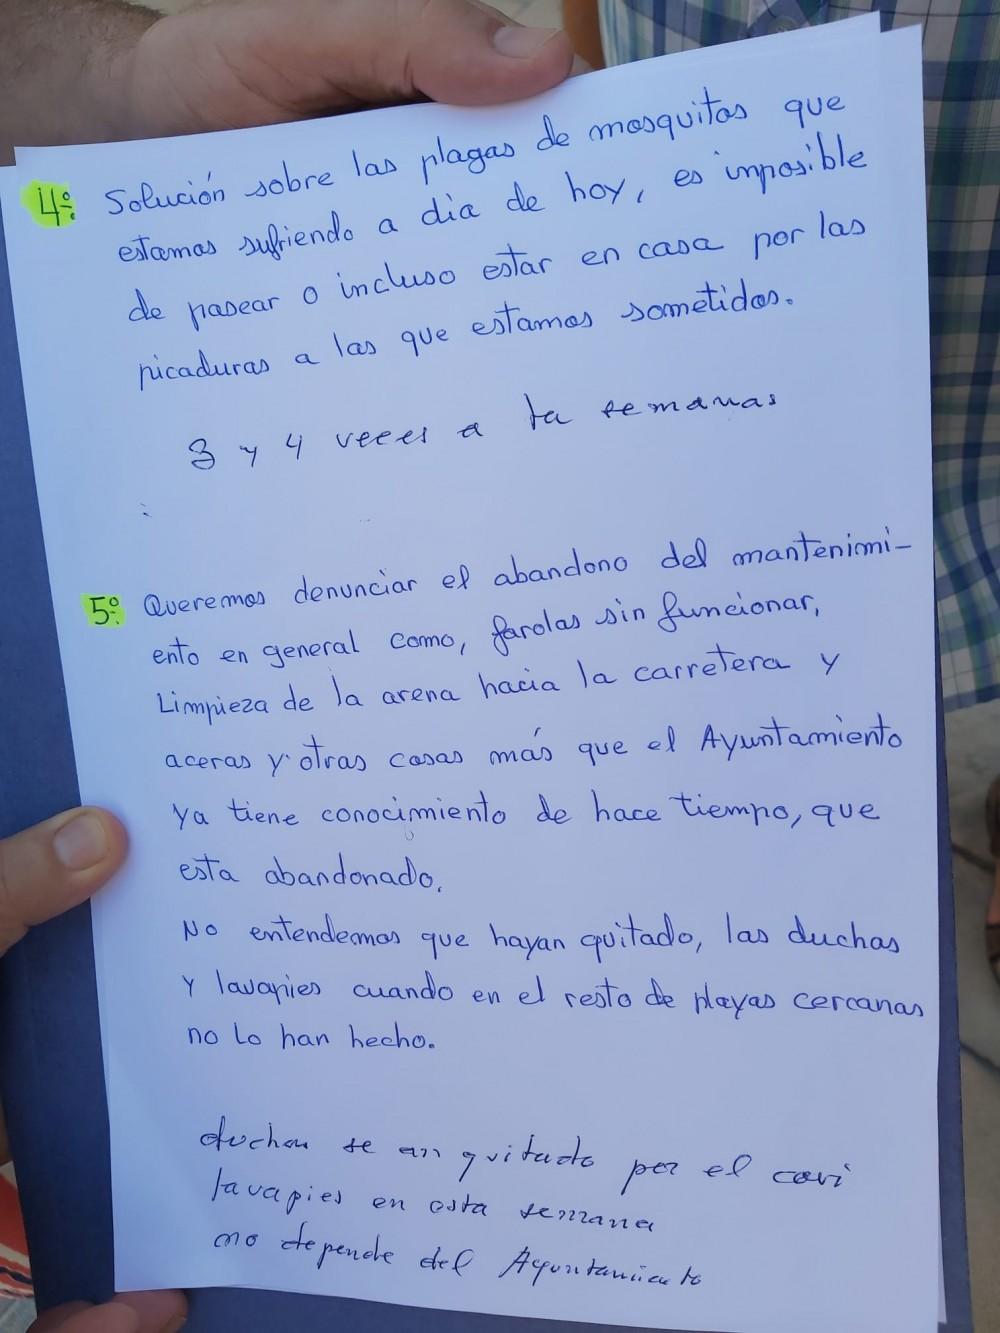 4º: Solución sobre las plagas de mosquitos que
estamos sufriendo a dia de hoy, es imposible
de pasear o incluso estar en casa por las
picaduras a las que estamos sometidos.
3 y 4 veces a la semanas
5º: Queremos denunciar el abandono del mantenimi-
ento en general como, farolas sin funcionar,
Limpieza de la arena hacia la carretera y
aceras y otras cosas más que el Ayuntamiento
ya tiene conocimiento de hace tiempo, que
esta abandonado.
No entendemos que hayan quitado, las duchas
y lavapies cuando en el resto de playas cercanas
no lo han hecho.
duchas se an quitado por el covi
lavapies en esta semana
no depende del Ayuntamiento